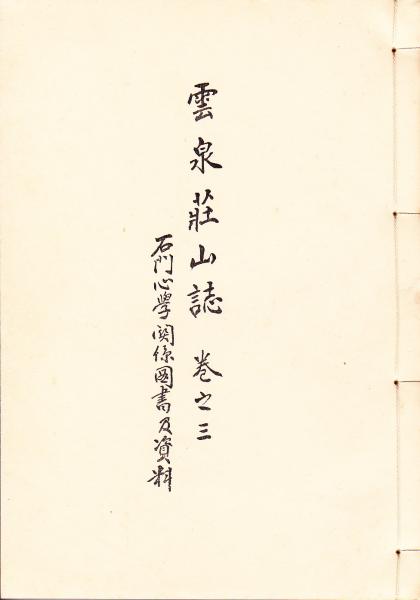 雲泉莊山誌 巻之三
石門心学関係圖書及資料